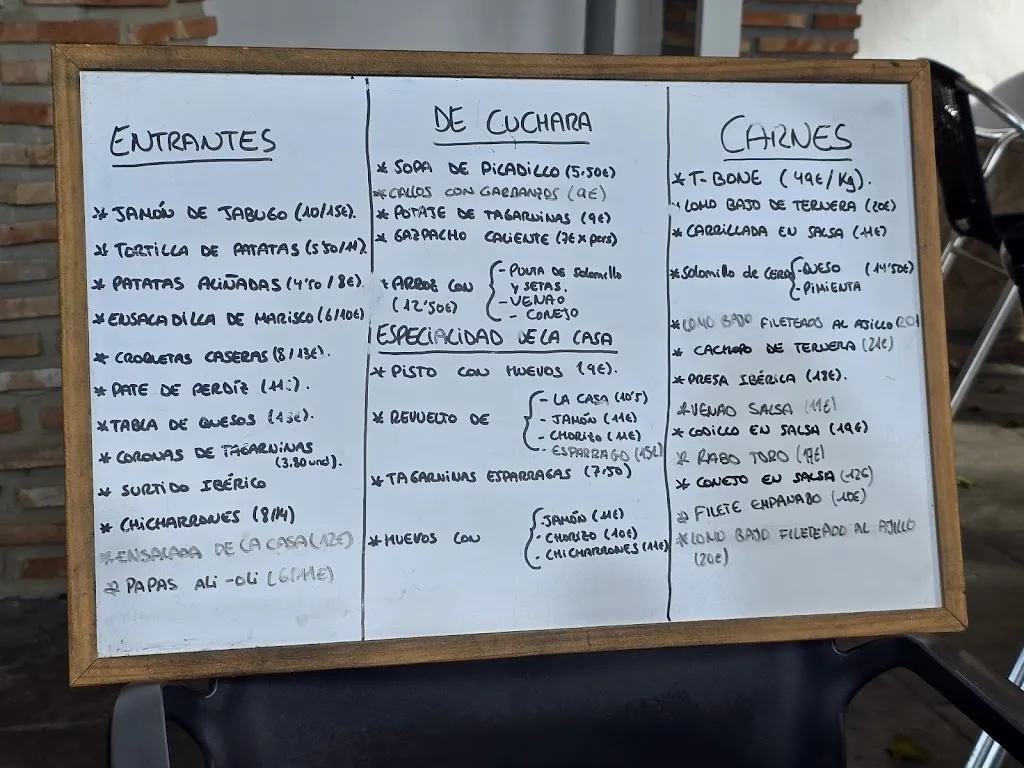 ENTRANTES
* JAMÓN DE JABUGO (10/15€).
* TORTILLA DE PATATAS (5'50/11).
* PATATAS ALIÑADAS (4'50/8€).
* ENSALADILLA DE MARISCO (6/10€)
* CROQUETAS CASERAS (8/13€).
* PATE DE PERDIZ (11:).
* TABLA DE QUESOS (13€).
* CORONAS DE TAGARNINAS
(3.80 und).
* SURTIDO IBÉRICO
* CHICHARRONES (8/14)
* ENSALADA DE LA CASA (12€)
* PAPAS ALI-OLI (6/11€)
DE CUCHARA
* SOPA DE PICADILLO (5.50€)
* CALLOS CON GARBANZOS (9€)
* POTAJE DE TAGARNINAS (9€)
* GAZPACHO CALIENTE (7€ x pers)
* ARROZ CON
(12'50€)
- PUNTA DE Solomillo
y SETAS.
- VENAO
- CONEJO
ESPECIALIDAD DE LA CASA
* PISTO CON HUEVOS (9€).
* REVUELTO DE
- LA CASA (10'5)
- JAMÓN (11€)
- CHORIZO (11€)
- ESPARRAGO (15€)
* TAGARNINAS ESPARRAGAS (7,50)
* HUEVOS CON
- JAMÓN (11€)
- CHORIZO (10€)
- CHICHARRONES (11€)
CARNES
* T-BONE (49€/Kg).
* LOMO BAJO DE TERNERA (20€)
* CARRILLADA EN SALSA (11€)
* Solomillo de CERDO
- QUESO (14'50€)
- PIMIENTA
* LOMO BAJO FILETEADO AL AJILLO (20)
* CACHOPO DE TERNERA (21€)
* PRESA IBÉRICA (18€).
* VENAO SALSA (11€)
* CODILLO EN SALSA (14€)
* RABO TORO (19€)
* CONEJO EN SALSA (12€)
* FILETE EMPANADO (10€)
* LOMO BAJO FILETEADO AL AJILLO
(20€)